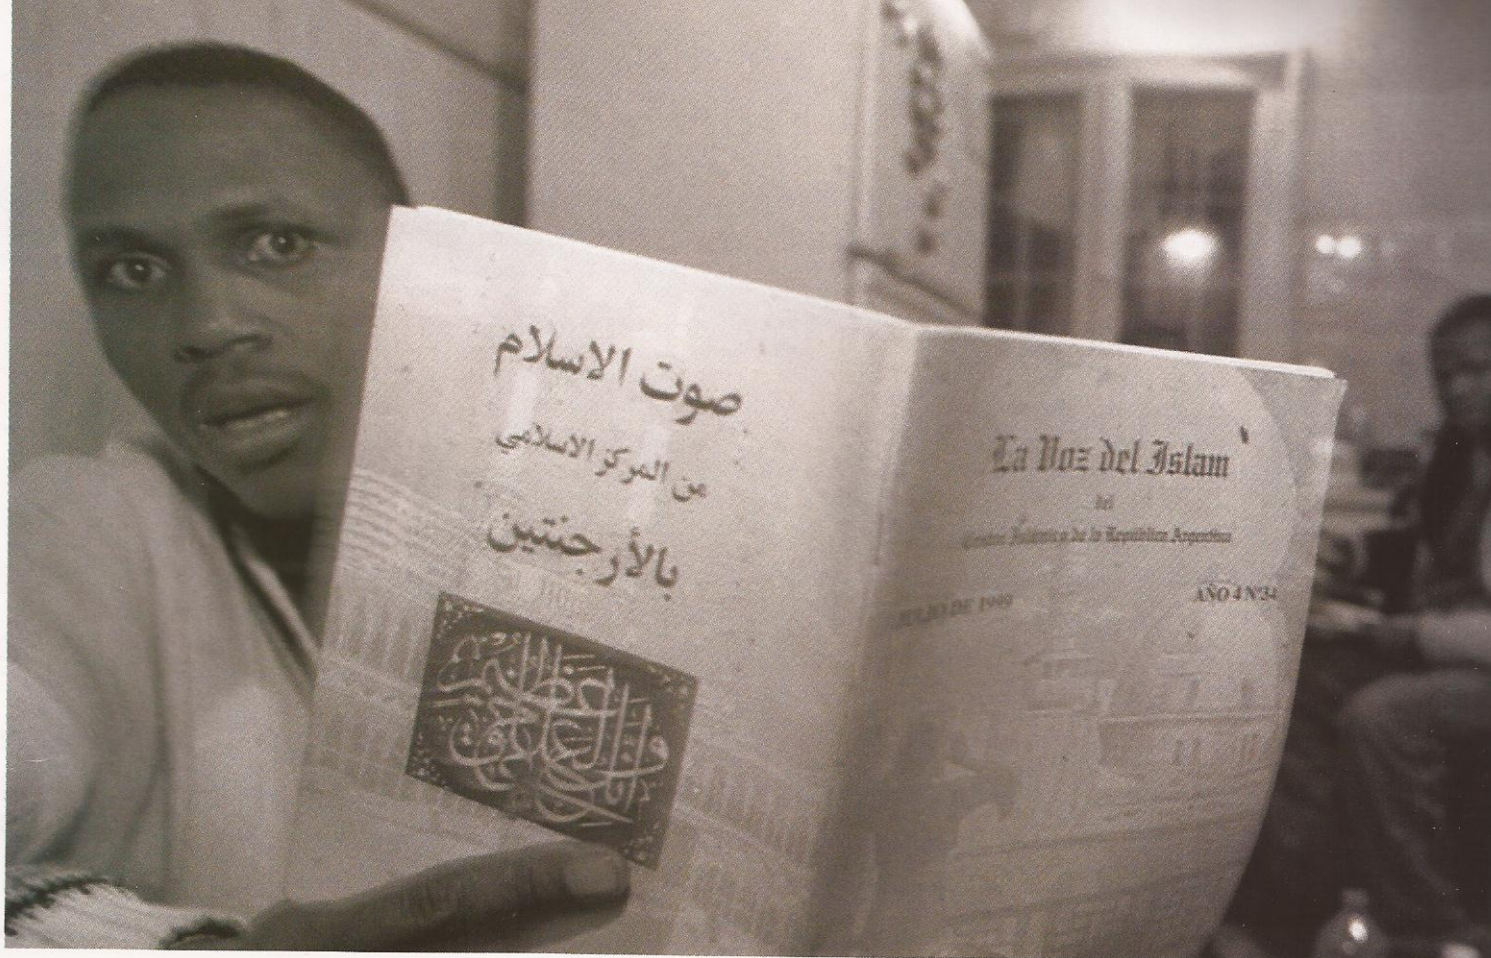 صوت الاسلام
من المركز الاسلامي
بالأرجنتين
La Voz del Islam
del
Centro Islámico de la República Argentina
JULIO DE 1999
AÑO 4 Nº34